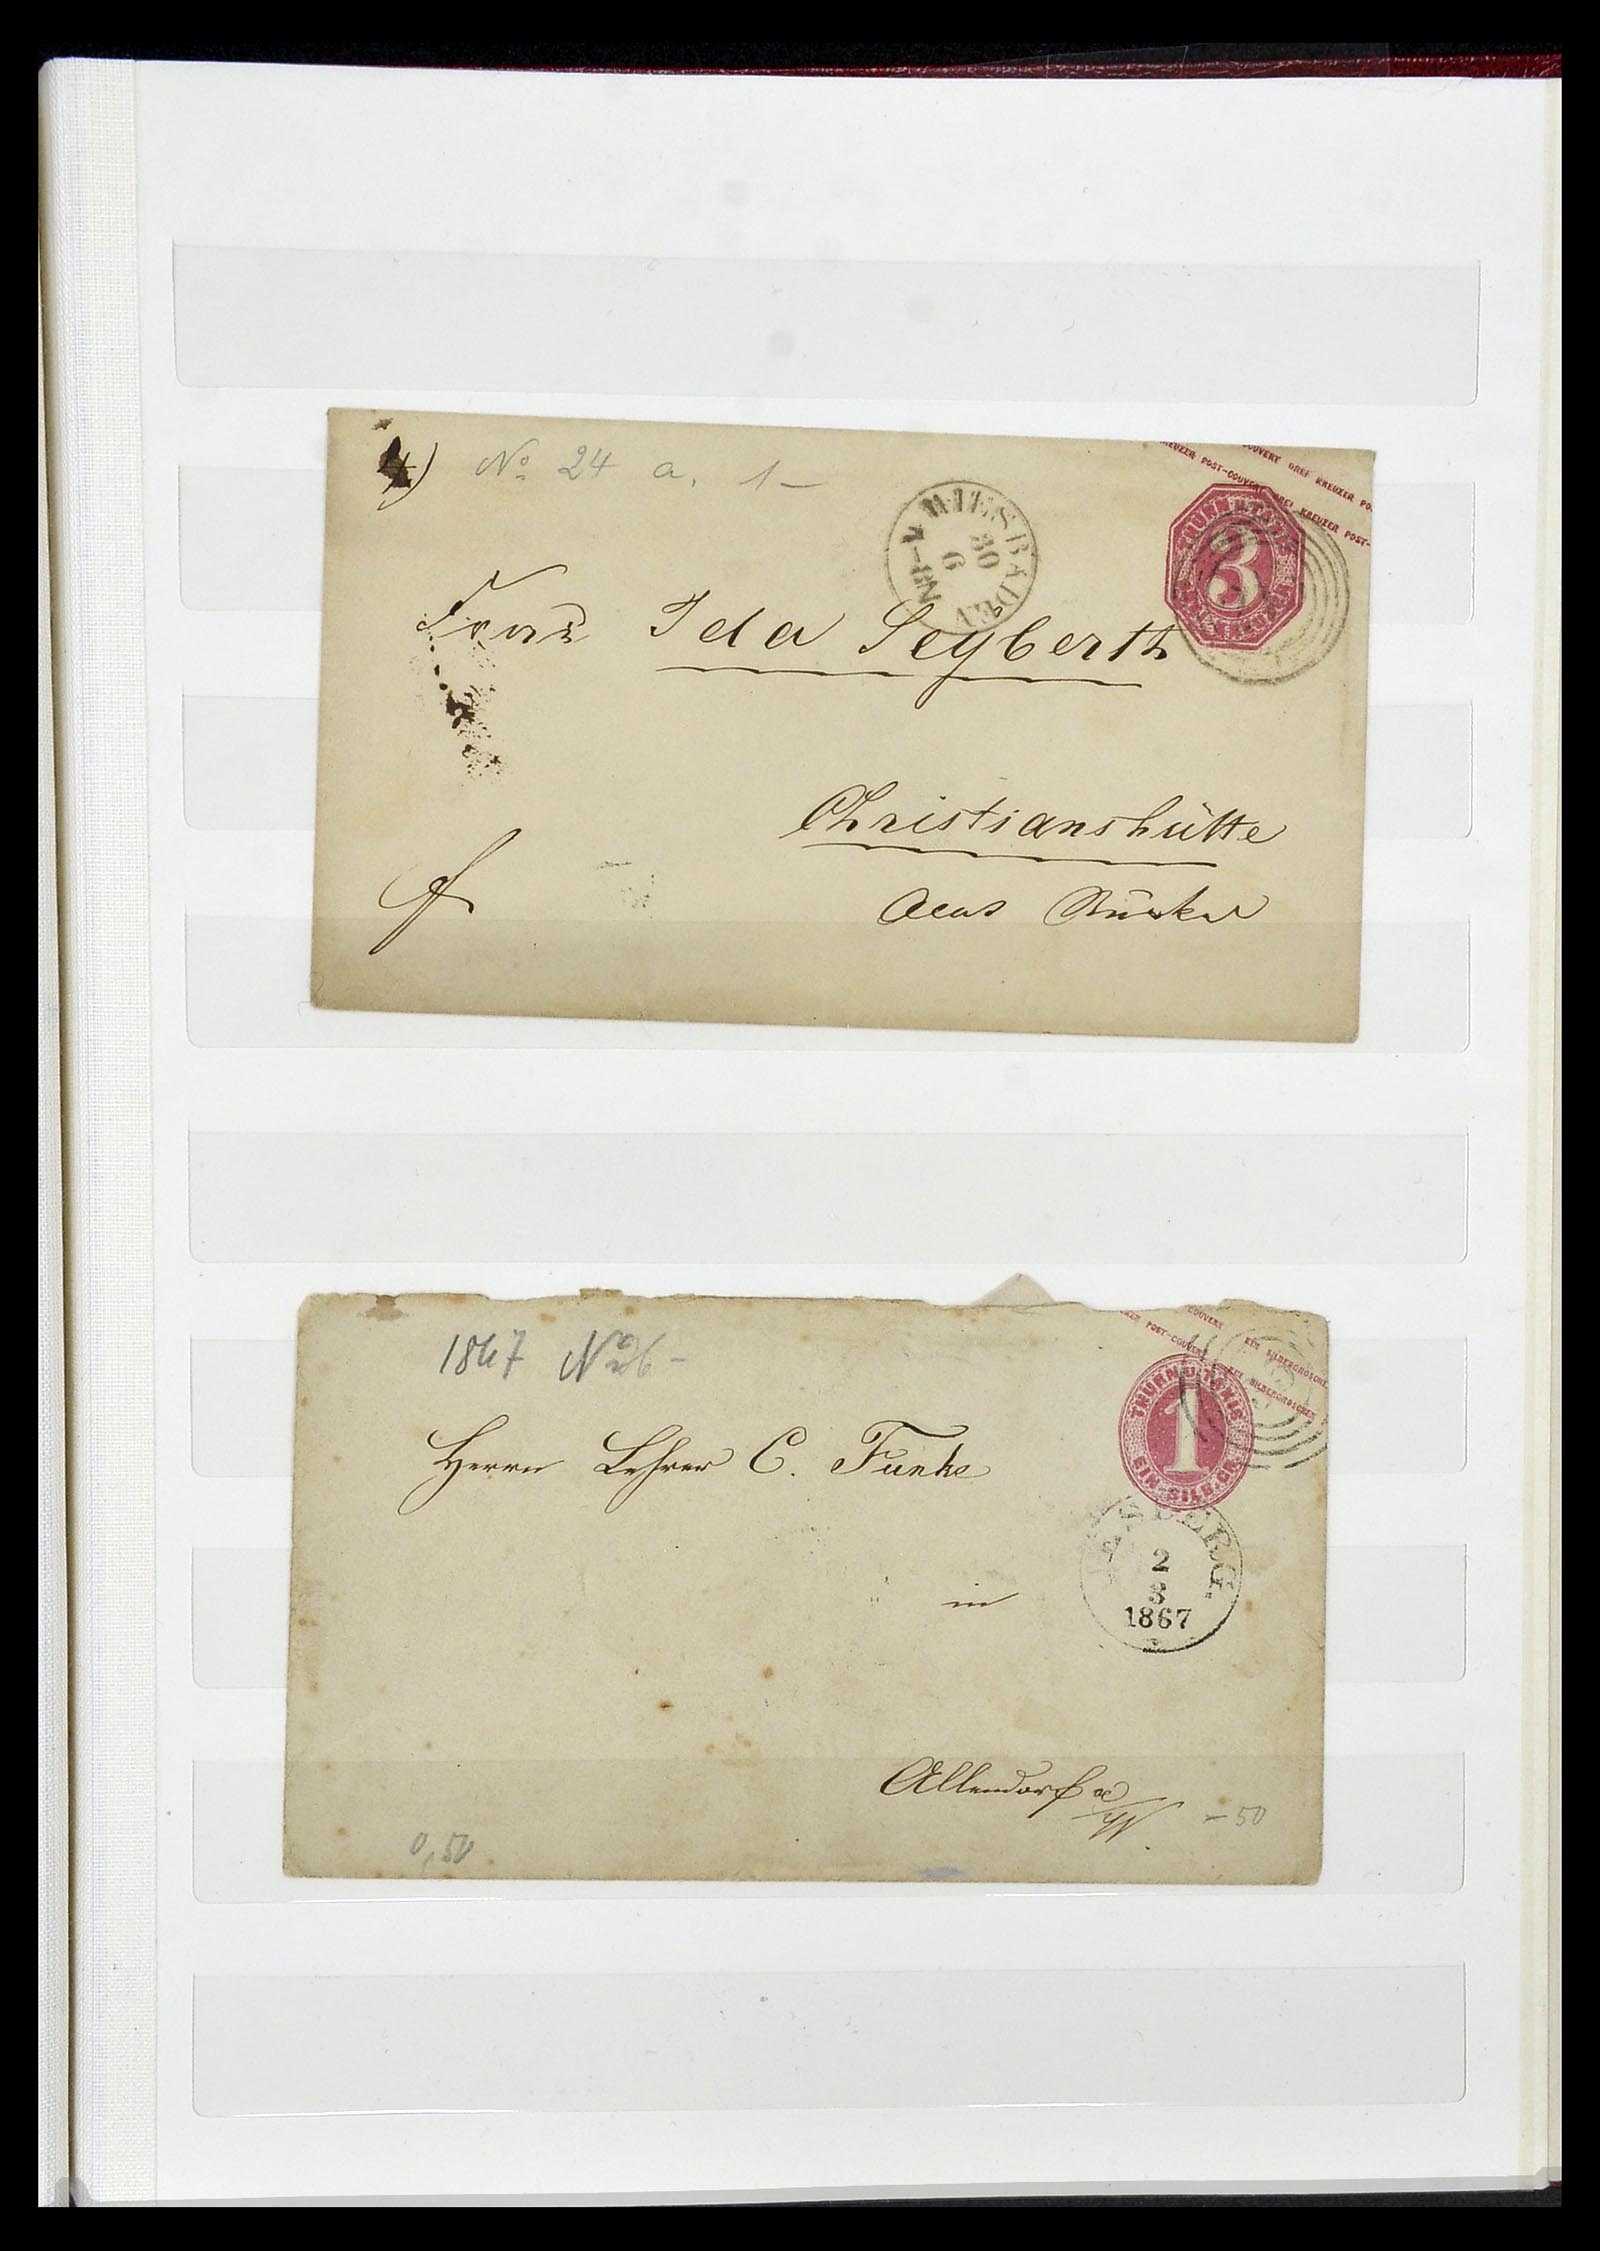 4) No 24 a. 1 —
KREUZER POST-COUVERT DREI KREUZER POST-
COUVERT DREI KREUZER PO
WIESBADEN
30
6
3
Frau Ida Seyberth
Christianshütte
1867 No 26 -
POST-COUVERT EIN SILBERGROSCHEN
COUVERT EIN SILBERGROSCHEN
THURN U. TAXIS
1
EIN SILB. GR.
Herrn Lehrer C. Funke
2
3
1867
in
Allendorf a/W
- 50
0,50